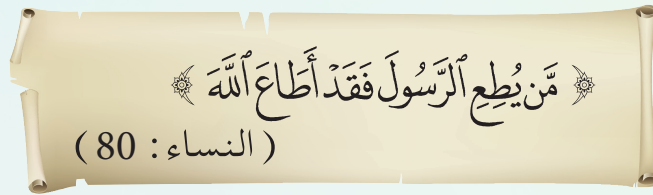 ﴿ مَّن يُطِعِ ٱلرَّسُولَ فَقَدْ أَطَاعَ ٱللَّهَ ﴾
( النساء : 80 )